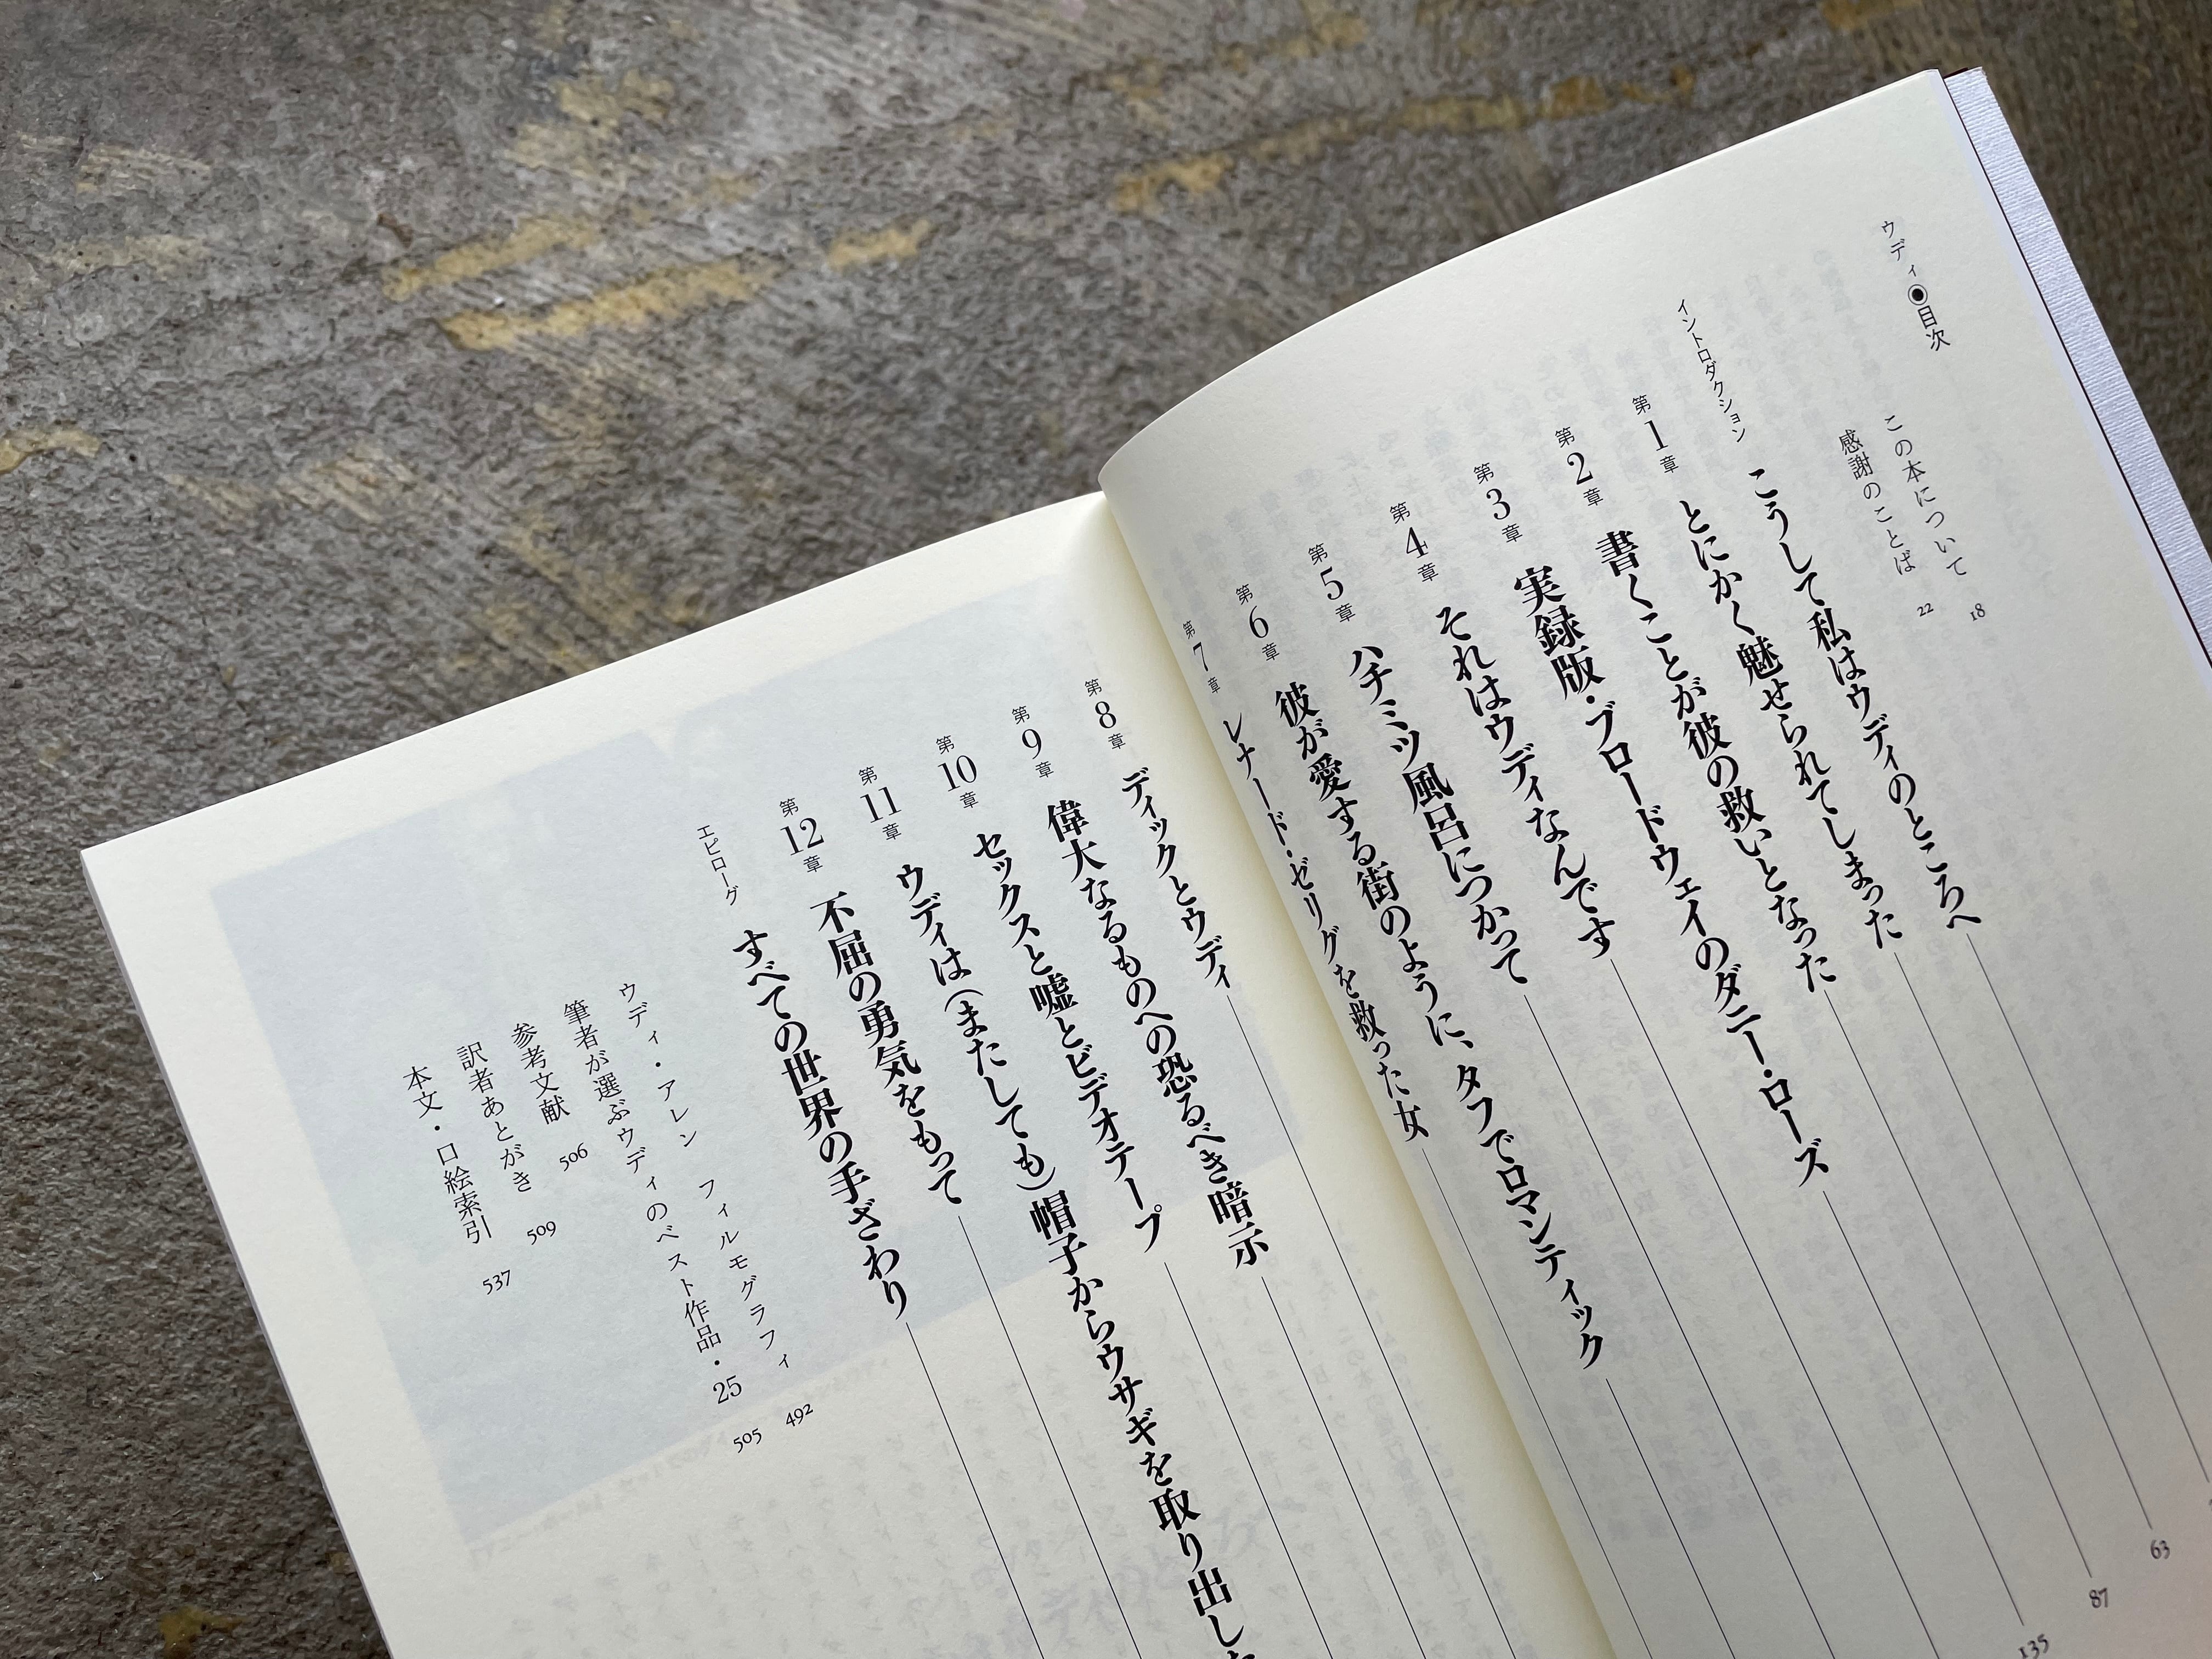 ウディ◉目次
この本について 18
感謝のことば 22
イントロダクション こうして私はウディのところへ
第1章 とにかく魅せられてしまった
第2章 書くことが彼の救いとなった 63
第3章 実録版・ブロードウェイのダニー・ローズ 87
第4章 それはウディなんです 135
第5章 ハチミツ風呂につかって
第6章 彼が愛する街のように、タフでロマンティック
第7章 レナード・ゼリグを救った女
第8章 ディックとウディ
第9章 偉大なるものへの恐るべき暗示
第10章 セックスと嘘とビデオテープ
第11章 ウディは（またしても）帽子からウサギを取り出した
第12章 不屈の勇気をもって
エピローグ すべての世界の手ざわり
ウディ・アレン フィルモグラフィ 492
筆者が選ぶウディのベスト作品・25 505
参考文献 506
訳者あとがき 509
本文・口絵索引 537